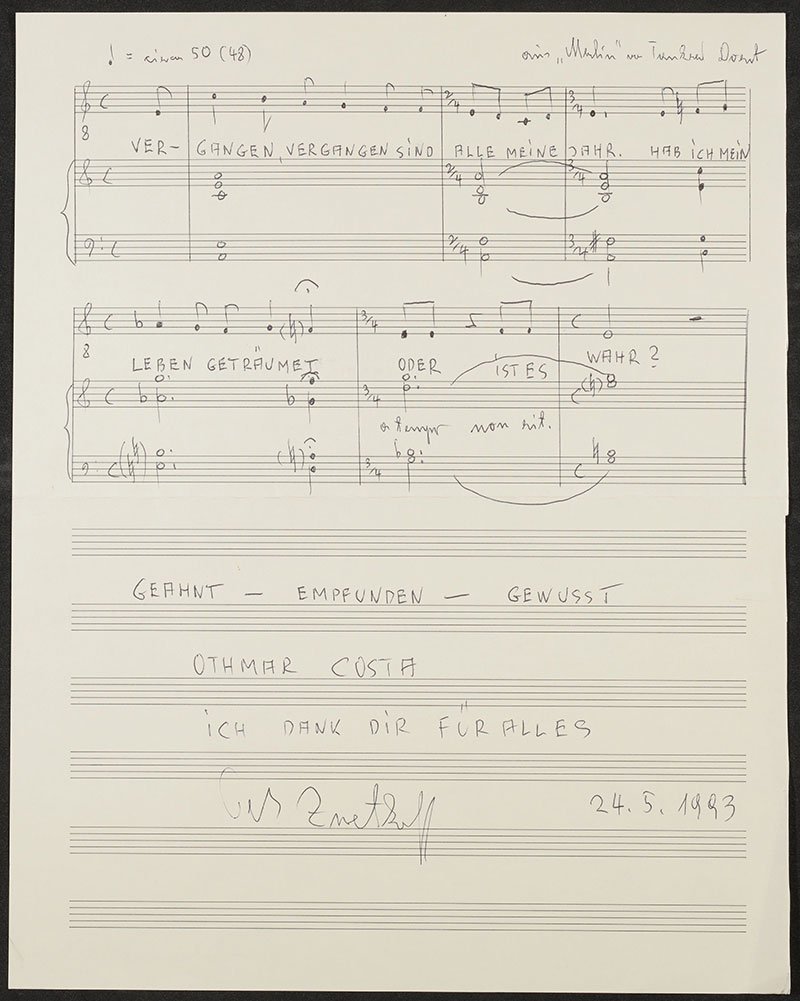 ♩ = circa 50 (48) aus „Merlin" von Tankred Dorst
VER- GANGEN, VERGANGEN SIND ALLE MEINE JAHR. HAB ICH MEIN
LEBEN GETRÄUMET ODER IST ES WAHR?
a tempo non rit.
GEAHNT — EMPFUNDEN — GEWUSST
OTHMAR COSTA
ICH DANK DIR FÜR ALLES
24. 5. 1993